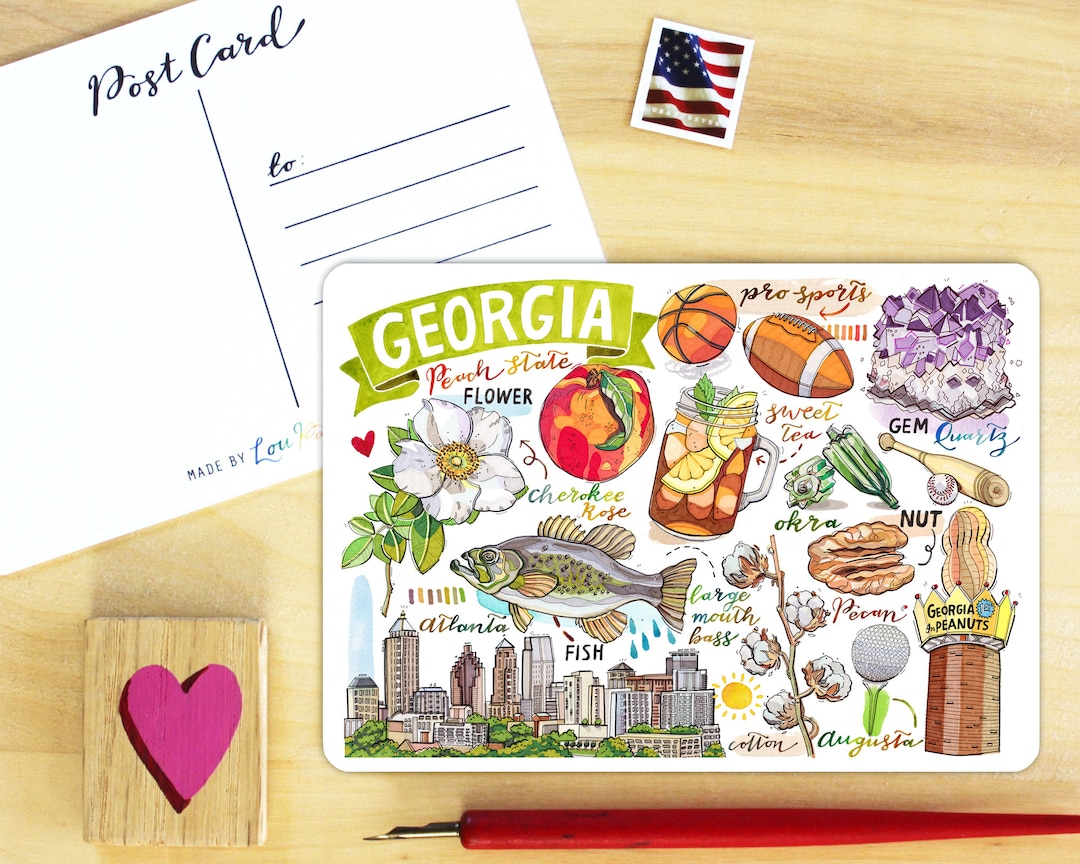 Post Card
to:
MADE BY Lou
GEORGIA
Peach State
FLOWER
Cherokee
Rose
pro sports
sweet
tea
GEM Quartz
okra
NUT
Pecan
GEORGIA
PEANUTS
large
mouth
bass
FISH
atlanta
cotton
augusta